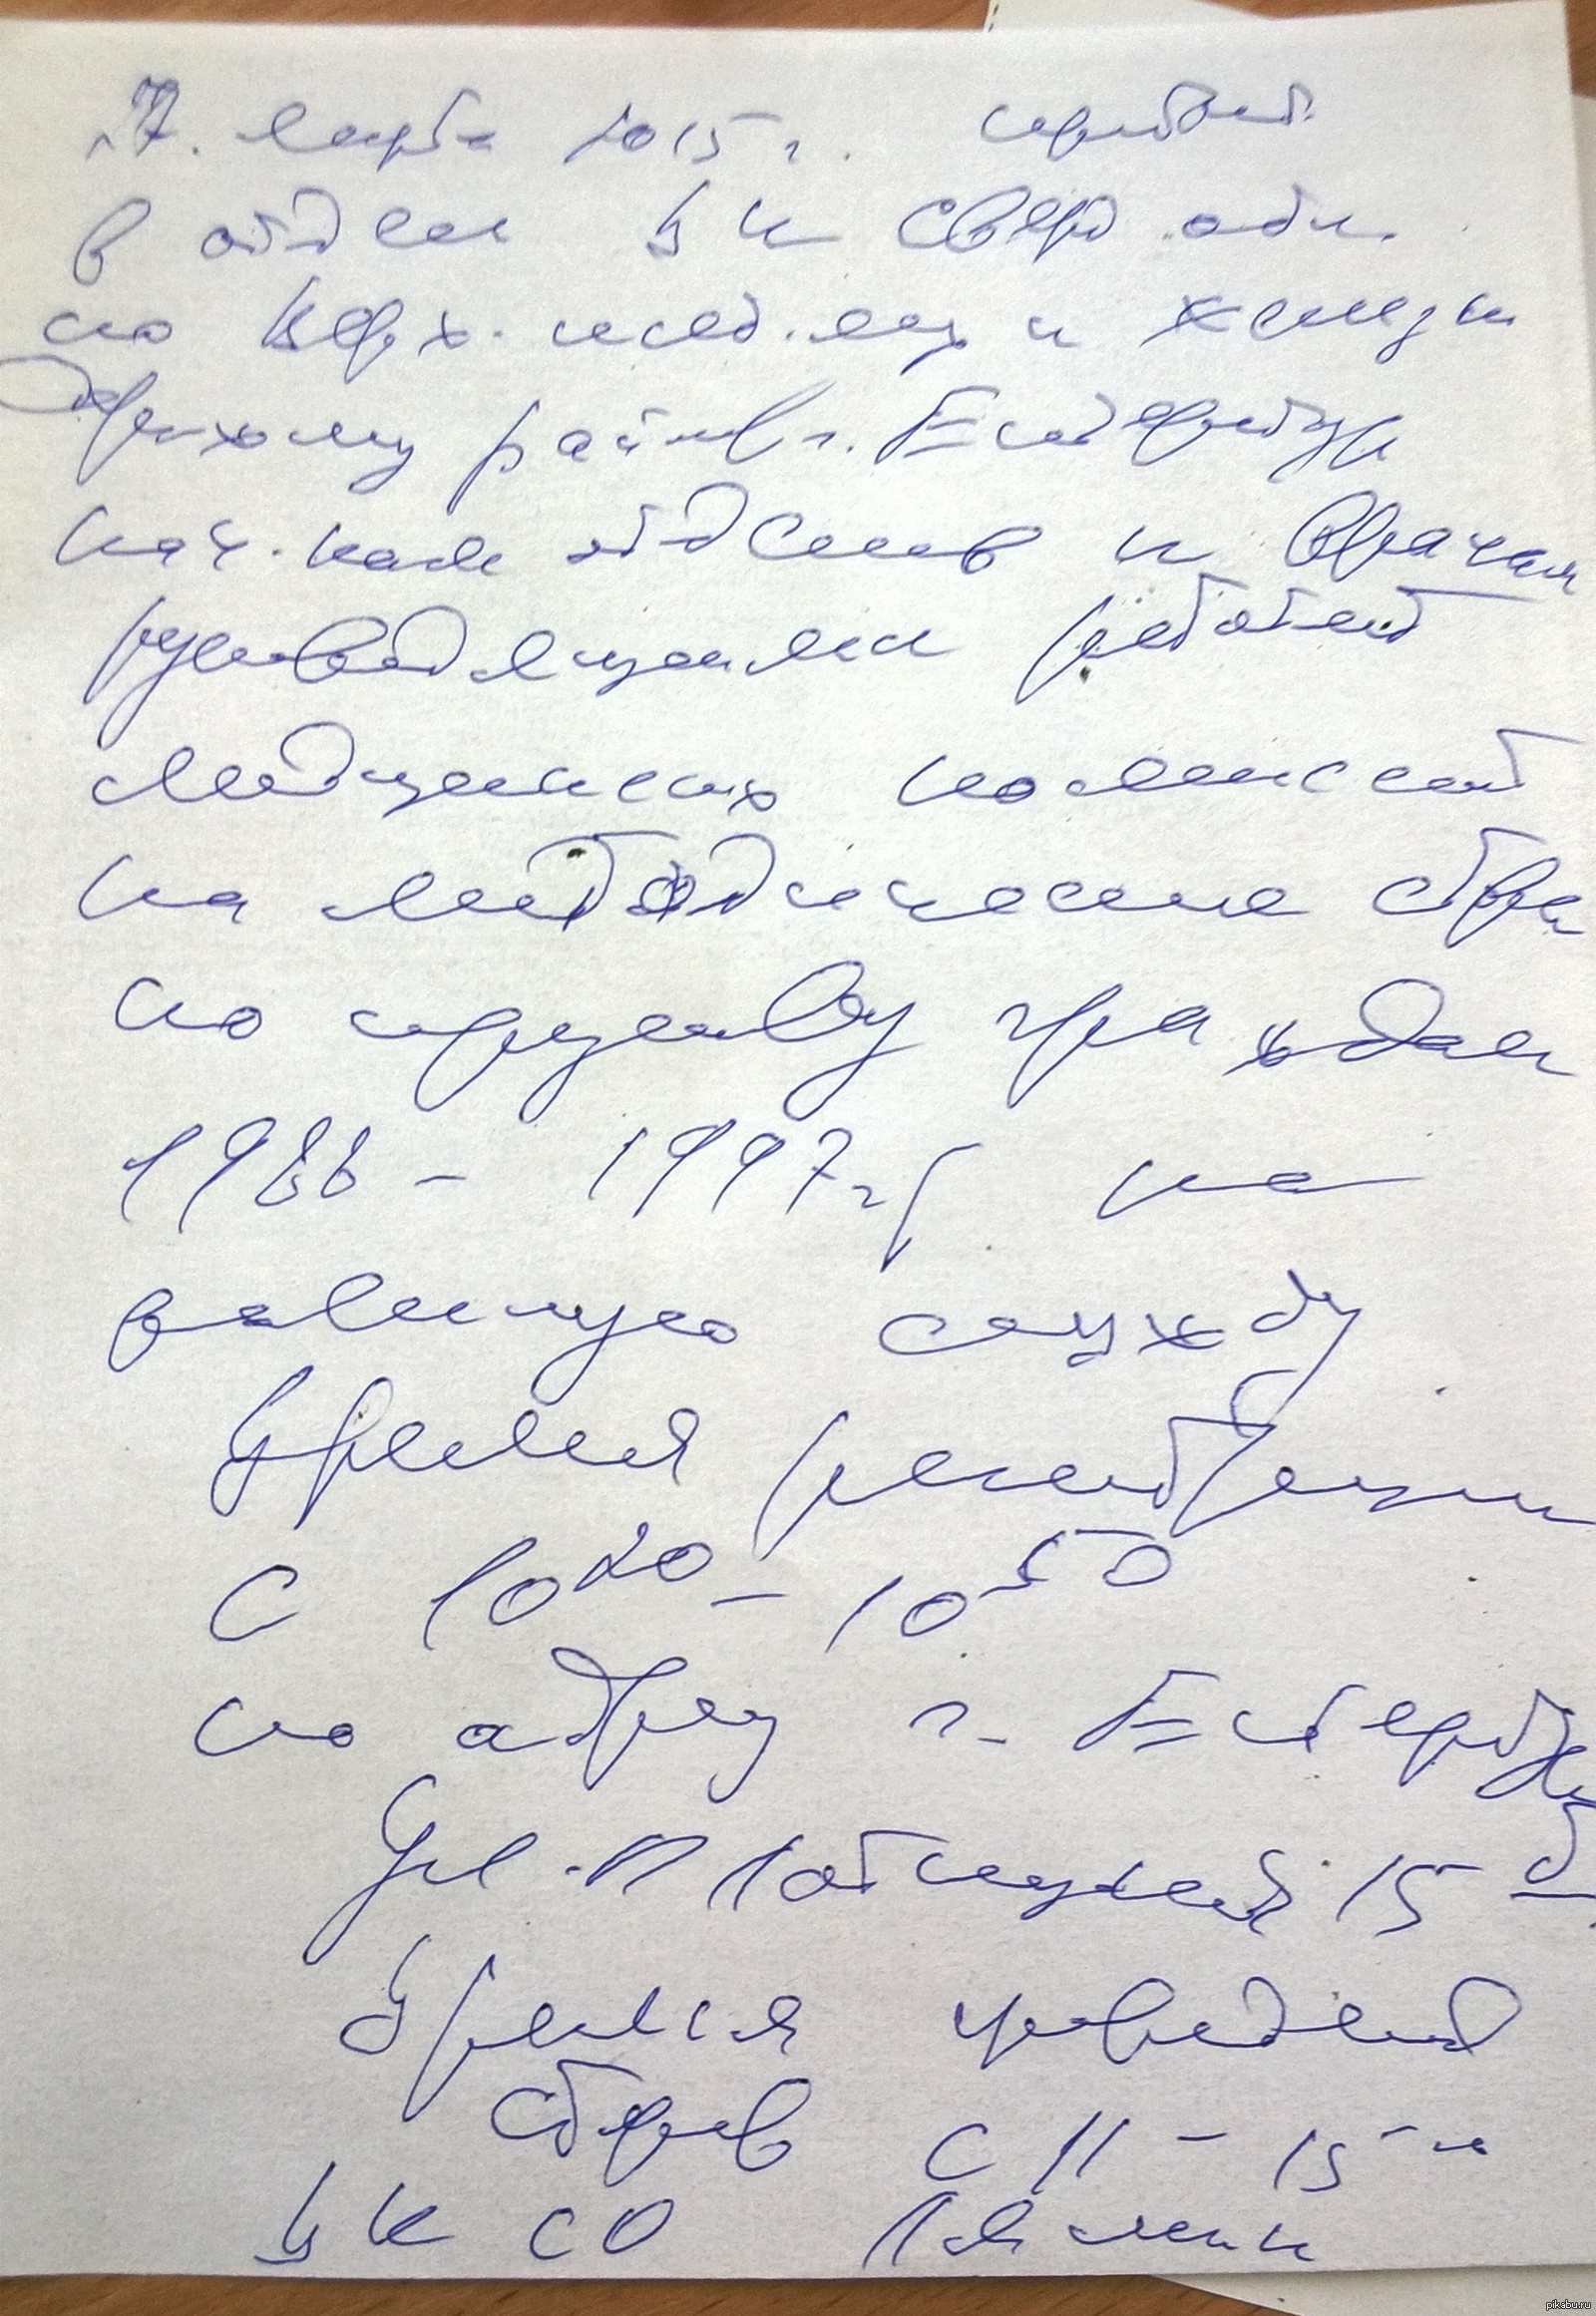 17. марта 2015 г. прибыт.
в отдел ВК Сверд обл.
по Верх. исет. му и железно
дорожному район г. Екатеринбург
нач.кам отделов и врачам
руководящими работой
медицинских комиссий
на методические сборы
по призыву граждан
1988 - 1997 г.р на
военную службу
Время регистрации
с 10 20 - 10 50
по адресу г. Екатеринбург
Ул.
Время проведения
сборов с 11 - 15
ВК СО
pikabu.ru